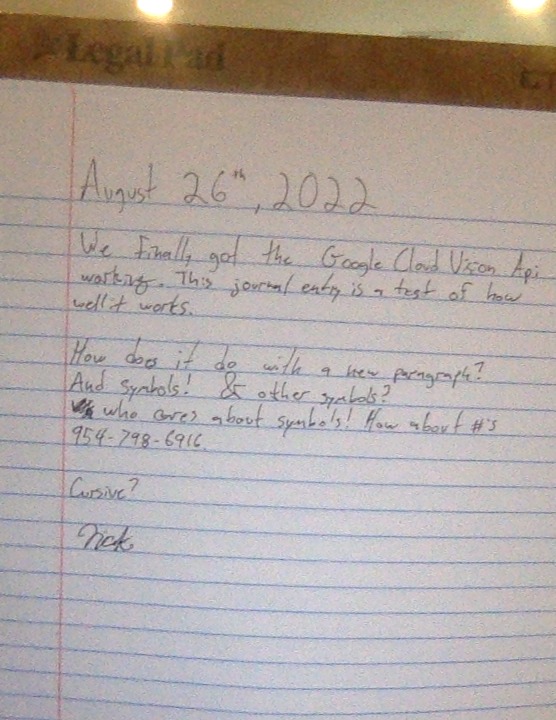 Legal Pad
August 26th, 2022
We Finally got the Google Cloud Vision Api
working. This journal entry is a test of how
well it works.
How does it do with a new paragraph?
And symbols! & other symbols?
who cares about symbols! How about #'s
954-798-6916.
Cursive?
Nick